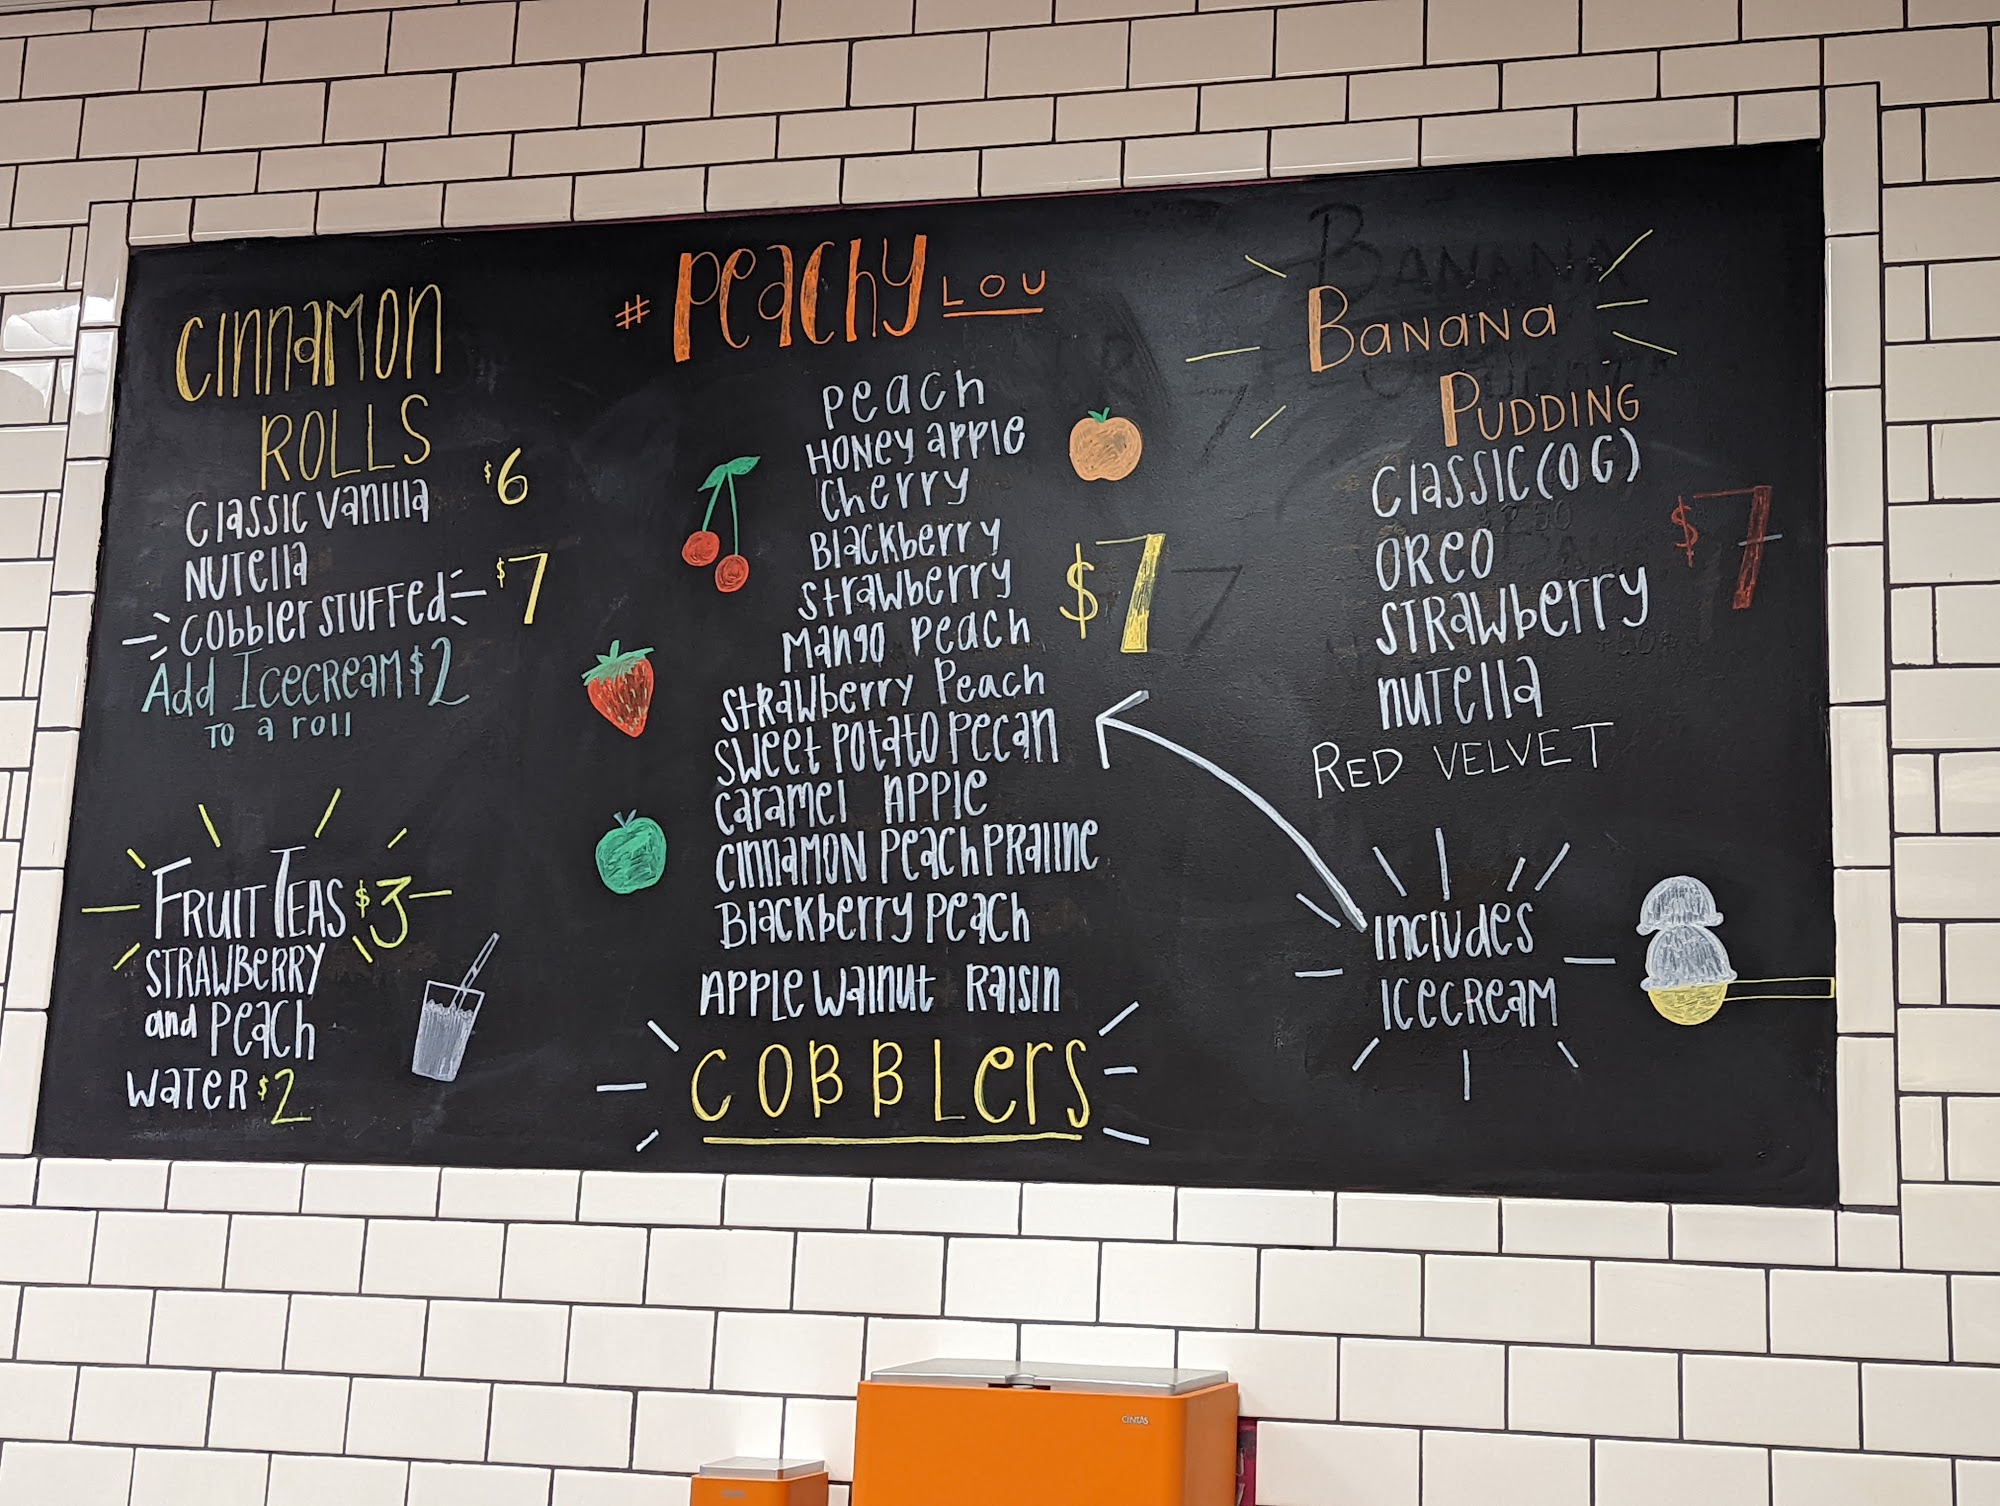 CINNAMON
ROLLS
Classic Vanilla $6
Nutella
Cobbler Stuffed $7
Add Icecream $2
to a roll
Fruit Teas $3
Strawberry
and Peach
Water $2
#Peachy LOU
Peach
Honey apple
Cherry
Blackberry
Strawberry
Mango Peach
$7
Strawberry Peach
Sweet Potato Pecan
Caramel Apple
Cinnamon Peach Praline
Blackberry Peach
Apple Walnut Raisin
COBBLers
BANANA
Banana
Pudding
Classic (OG)
Oreo
$7
Strawberry
Nutella
Red Velvet
Includes
Icecream
CINTAS